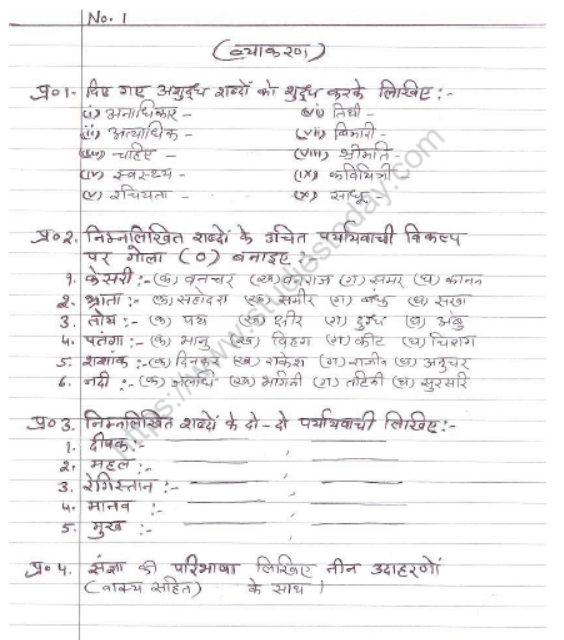 No. 1
(व्याकरण)
प्र०1- दिए गए अशुद्ध शब्दों को शुद्ध करके लिखिए :-
(i) अनाधिकार - (vi) तिथी -
(ii) अत्याधिक - (vii) बिमारी -
(iii) चाहिए - (viii) श्रीमति -
(iv) स्वस्थ्य - (ix) कवियित्री
(v) रचियता - (x) साधू
प्र०2. निम्नलिखित शब्दों के उचित पर्यायवाची विकल्प
पर गोला (०) बनाइए :-
१. केसरी :- (क) वनचर (ख) वनराज (ग) समर (घ) कानन
2. भ्राता :- (क) सहोदरा (ख) समीर (ग) बंधु (घ) सखा
3. तोय :- (क) पय (ख) क्षीर (ग) दुग्ध (घ) अंबु
4. पतंगा :- (क) भानु (ख) विहग (ग) कीट (घ) चिराग
5. शशांक :- (क) दिनकर (ख) राकेश (ग) राजीव (घ) अनुचर
6. नदी :- (क) जलधि (ख) भगिनी (ग) तटिनी (घ) सुरसरि
प्र० 3. निम्नलिखित शब्दों के दो-दो पर्यायवाची लिखिए :-
१. दीपक :- ,
2. महल :-
3. रेगिस्तान :- ,
4. मानव :- ,
5. मुख :-
प्र० 4. संज्ञा की परिभाषा लिखिए तीन उदाहरणों
(वाक्य सहित) के साथ ।
https://www.studiestoday.com